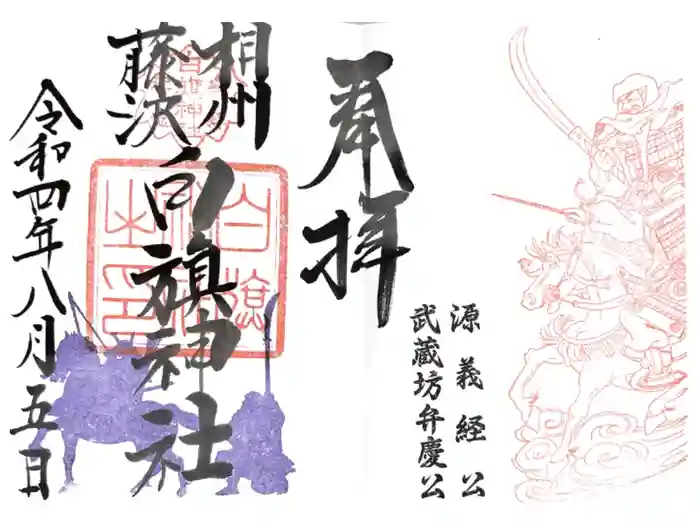 源義経公
武蔵坊弁慶公
奉拝
相州
藤沢
白旗神社
令和四年八月五日